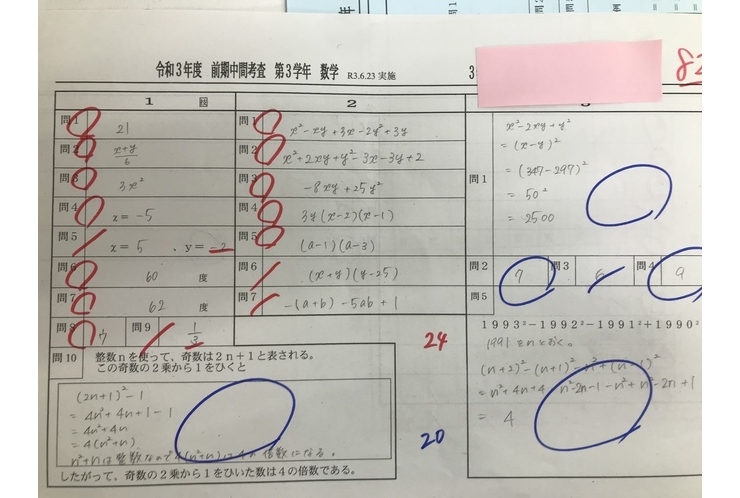 令和3年度 前期中間考査 第3学年 数学 R3.6.23 実施
3
82
1 図
問1 21
問2 x+y/6
問3 3x²
問4 x=-5
問5 x=5 、y=-2
問6 60 度
問7 62 度
問8 7 問9 1/3
問10 整数nを使って、奇数は2n+1と表される。
この奇数の2乗から1をひくと
(2n+1)²-1
=4n²+4n+1-1
=4n²+4n
=4(n²+n)
n²+nは整数なので4(n²+n)は4の倍数になる。
したがって、奇数の2乗から1をひいた数は4の倍数である。
2
問1 x²-xy+3x-2y²+3y
問2 x²+2xy+y²-3x-3y+2
問3 -8xy+25y²
問4 3y(x-2)(x-1)
問5 (a-1)(a-3)
問6 (x+y)(y-25)
問7 -(a+b)-5ab+1
24
20
問1
x²-2xy+y²
=(x-y)²
=(347-297)²
=50²
=2500
問2 7 問3 6 問4 9
問5
1993²-1992²-1991²+1990²
1991をnとおく。
(n+2)²-(n+1)²-n²+(n-1)²
=n²+4n+4-n²-2n-1-n²+n²-2n+1
=4